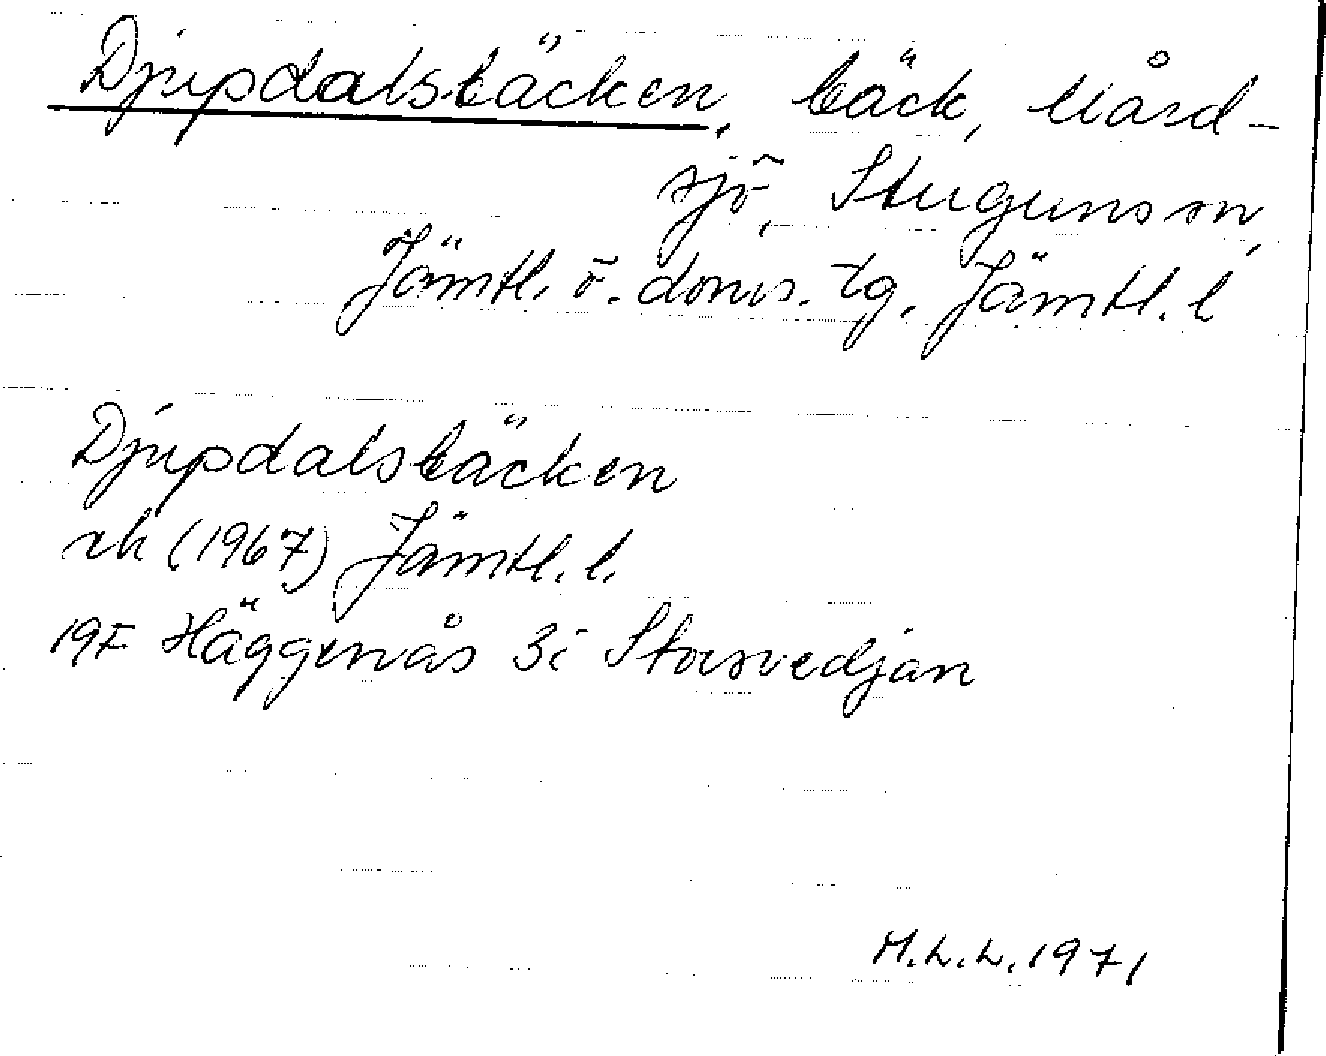 Djupdalsbäcken, bäck, Mård-
sjö, Stuguns sn,
Jämtl. ö. doms. tg, Jämtl. l
Djupdalsbäcken
rk (1967) Jämtl. l.
19F Häggenås 3i Storsvedjan
M.L.L. 1971